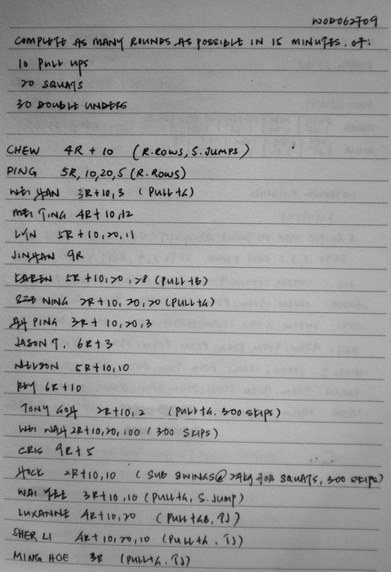 WOD062709
COMPLETE AS MANY ROUNDS AS POSSIBLE IN 15 MINUTES. OF:
10 PULL UPS
20 SQUATS
30 DOUBLE UNDERS
CHEW 4R + 10 (R.ROWS, S.JUMPS)
PING 5R, 10,20,5 (R.ROWS)
WEI JIAN 3R+10,3 (PULL+G)
MEI TING 4R+10,12
LYN 5R+10,20,11
JINJIAN 9R
KAREN 5R+10,20,28 (PULL+B)
SZE NING 2R+10,20,20 (PULL+G)
AH PING 3R+10,20,3
JASON T. 6R+3
NELSON 5R+10,10
6R+10
TONY GOH 2R+10,2 (PULL+G, 300 SKIPS)
WEI WAH 2R+10,20,100 (300 SKIPS)
CRIG 9R+5
HICK 2R+10,10 (SUB SWINGS@ FOR SQUATS, 300 SKIPS)
WAI YEE 3R+10,10 (PULL+G, S.JUMP)
LUXANNE 4R+10,20 (PULL+GB, TJ)
SHER LI 4R+10,20,10 (PULL+G, TJ)
MING HOE 3R (PULL+G, TJ)